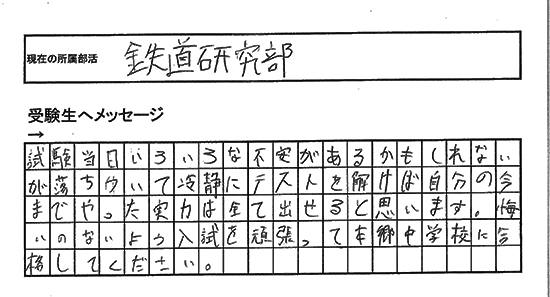 現在の所属部活 鉄道研究部
受験生へメッセージ
→
試験当日いろいろな不安があるかもしれない
が落ち ついて冷静にテストを解けば自分の今
までやった実力は全て出せると思います。悔
いのないよう入試を頑張って本郷中学校に合
格してください。